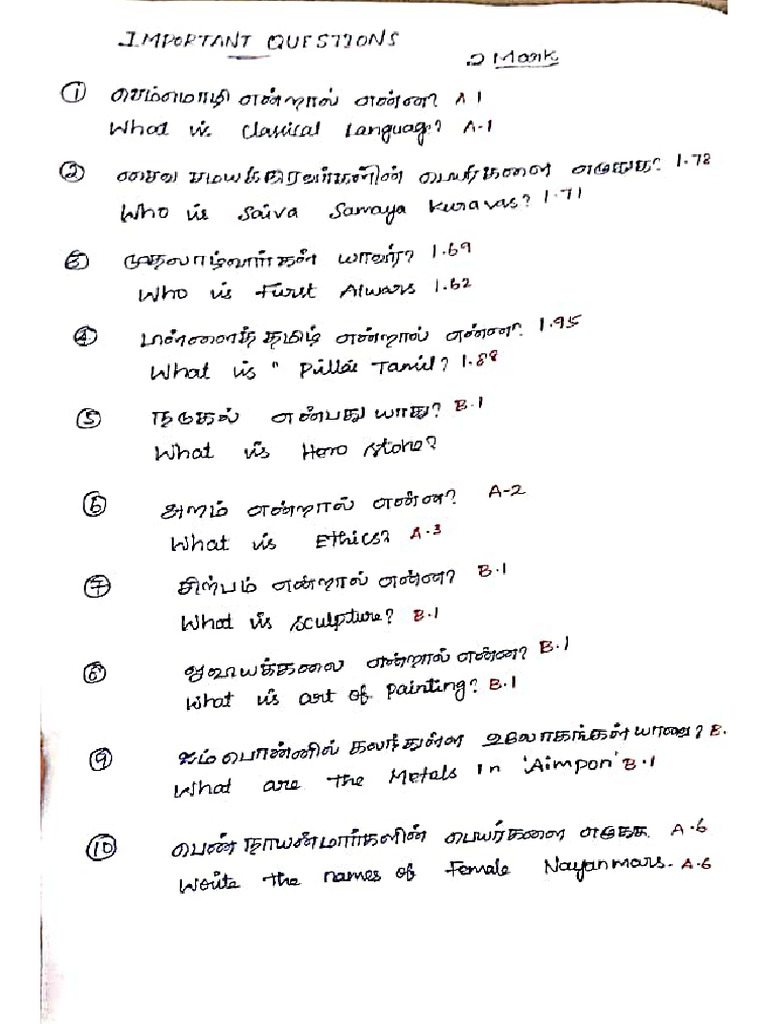 IMPORTANT QUESTIONS
2 Mark
① செம்மொழி என்றால் என்ன? A 1
What is Classical Language? A-1
② சைவ சமயக்குரவர்களின் பெயர்களை எழுதுக? 1.78
Who is Saiva Samaya Kuravas? 1.71
③ முதலாழ்வார்கள் யாவர்? 1.69
Who is First Alwars 1.62
④ பிள்ளைத் தமிழ் என்றால் என்ன? 1.95
What is " Pillai Tamil? 1.88
⑤ நடுகல் என்பது யாது? B.1
What is Hero Stone?
⑥ அறம் என்றால் என்ன? A-2
What is Ethics? A.3
⑦ சிற்பம் என்றால் என்ன? B.1
What is sculpture? B.1
⑧ ஓவியக்கலை என்றால் என்ன? B.1
What is art of painting? B.1
⑨ ஐம்பொன்னில் கலந்துள்ள உலோகங்கள் யாவை? B.
What are the Metals in 'Aimpon' B.1
⑩ பெண் நாயன்மார்களின் பெயர்களை எழுதுக. A.6
Write the names of Female Nayanmars. A.6